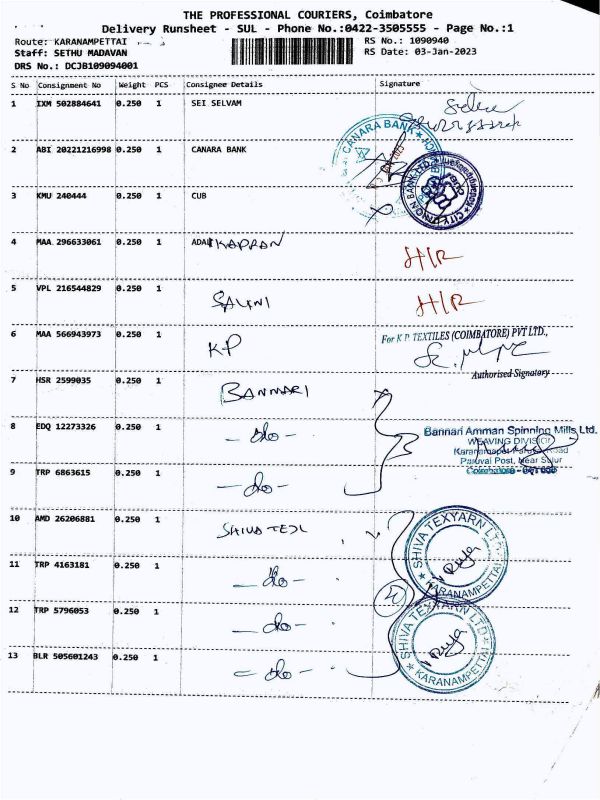 THE PROFESSIONAL COURIERS, Coimbatore
Delivery Runsheet - SUL - Phone No.:0422-3505555 - Page No.:1
Route: KARANAMPETTAI
RS No.: 1090940
Staff: SETHU MADAVAN
RS Date: 03-Jan-2023
DRS No.: DCJB109094001
S No Consignment No Weight PCS Consignee Details Signature
1 IXM 502884641 0.250 1 SEI SELVAM
2 ABI 20221216998 0.250 1 CANARA BANK
CANARA BANK
3 KMU 240444 0.250 1 CUB
CITY UNION BANK LTD
4 MAA 296633061 0.250 1 KAPPAN H/R
5 VPL 216544829 0.250 1 H/R
6 MAA 566943973 0.250 1 KP
For K P TEXTILES (COIMBATORE) PVT LTD.,
Authorised Signatory
7 HSR 2599035 0.250 1 BANMARI
8 EDQ 12273326 0.250 1 -do-
Bannari Amman Spinning Mills Ltd.
WEAVING DIVISION
9 TRP 6863615 0.250 1 -do-
Paruvai Post, Near Sulur
10 AMD 26206881 0.250 1 SHIVA TEX
SHIVA TEXYARN LTD
KARANAMPETTAI
11 TRP 4163181 0.250 1 -do-
12 TRP 5796053 0.250 1 -do-
SHIVA TEXYARN LTD
KARANAMPETTAI
13 BLR 505601243 0.250 1 -do-